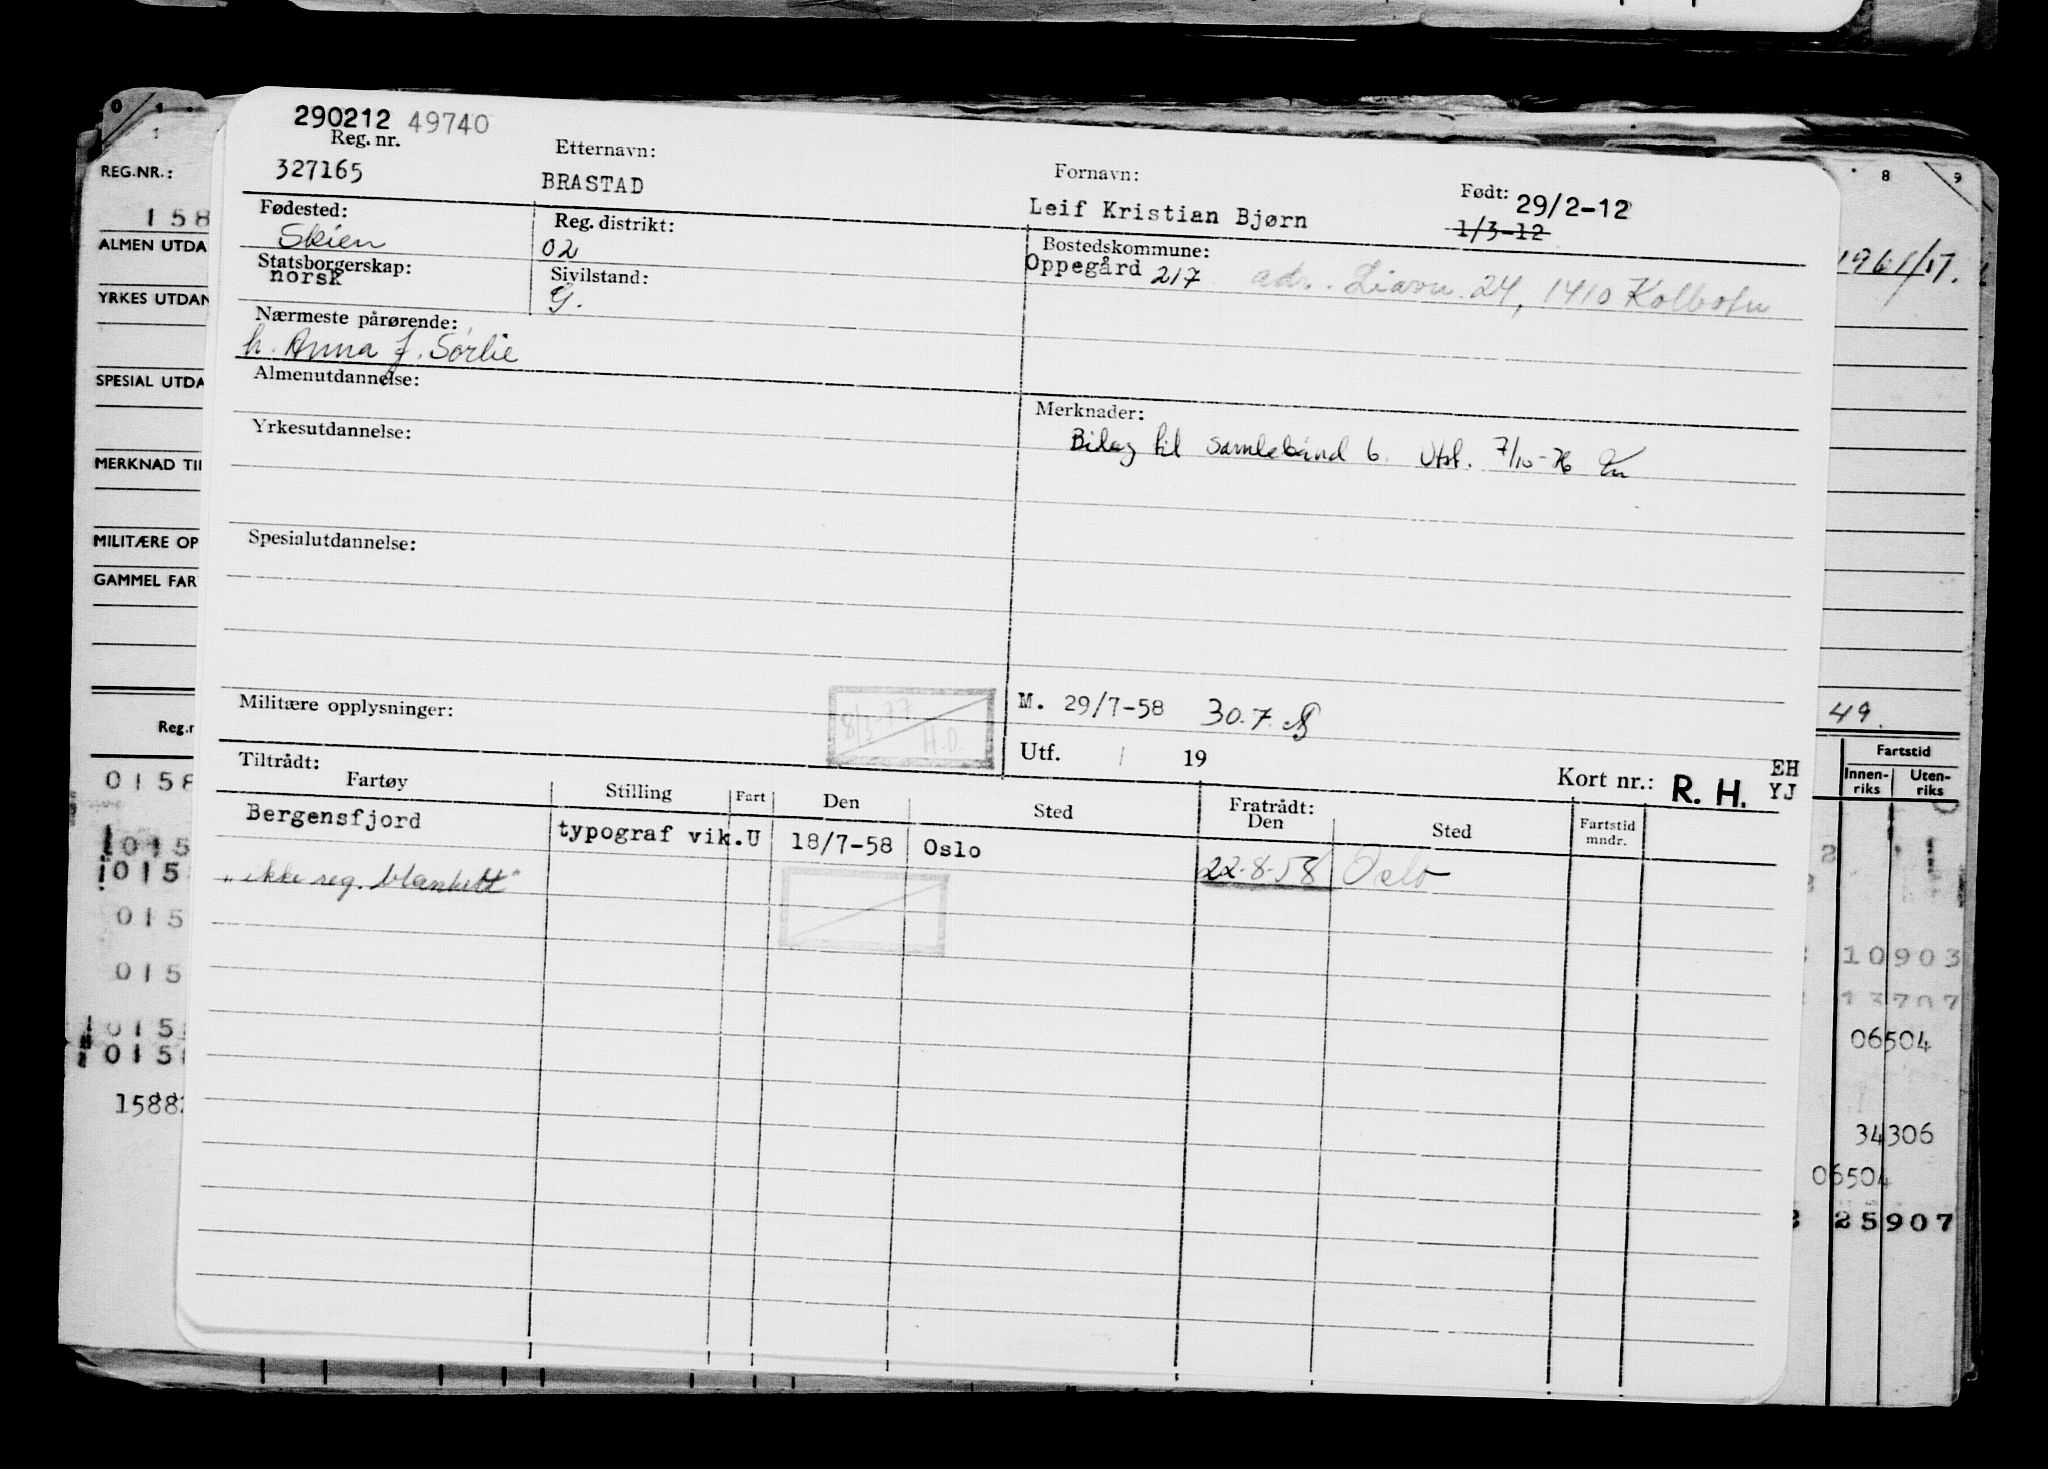 290212 49740
Reg. nr. Etternavn: Fornavn: Født: 29/2-12
327165 BRASTAD Leif Kristian Bjørn 1/3-12
Fødested: Reg. distrikt: Bostedskommune:
Skien 02 Oppegård 217 adr. 24, 1410 Kolbotn
Statsborgerskap: Sivilstand:
norsk G.
Nærmeste pårørende:
h. Anna J. Sørlie
Almenutdannelse: Merknader:
Yrkesutdannelse: Bilag til Samlebånd 6. Utst. 7/10-76
Spesialutdannelse:
Militære opplysninger: 8/3-77 H.D. M. 29/7-58 30.7.
Utf. / 19 Kort nr.: R. H. EH YJ
Tiltrådt: Fratrådt:
Fartøy Stilling Fart Den Sted Den Sted Fartstid mndr.
Bergensfjord typograf vik. U 18/7-58 Oslo 22-8-58 Oslo
"ikke reg. blankett"
REG.NR.:
158
ALMEN UTDA
YRKES UTDAN
SPESIAL UTDA
MERKNAD TIL
MILITÆRE OP
GAMMEL FAR
Reg.n
0158
015
015
015
015
015
015
15882
8 9
49.
Fartstid
Innen-riks Uten-riks
2
10903
13707
06504
34306
06504
25907